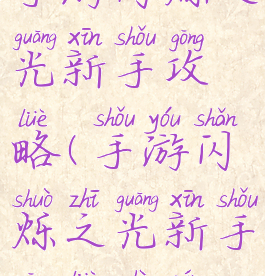 guāng xīn shǒu gōng
光新手攻
lüè shǒu yóu shǎn
略(手游闪
shuò zhī guāng xīn shǒu
烁之光新手